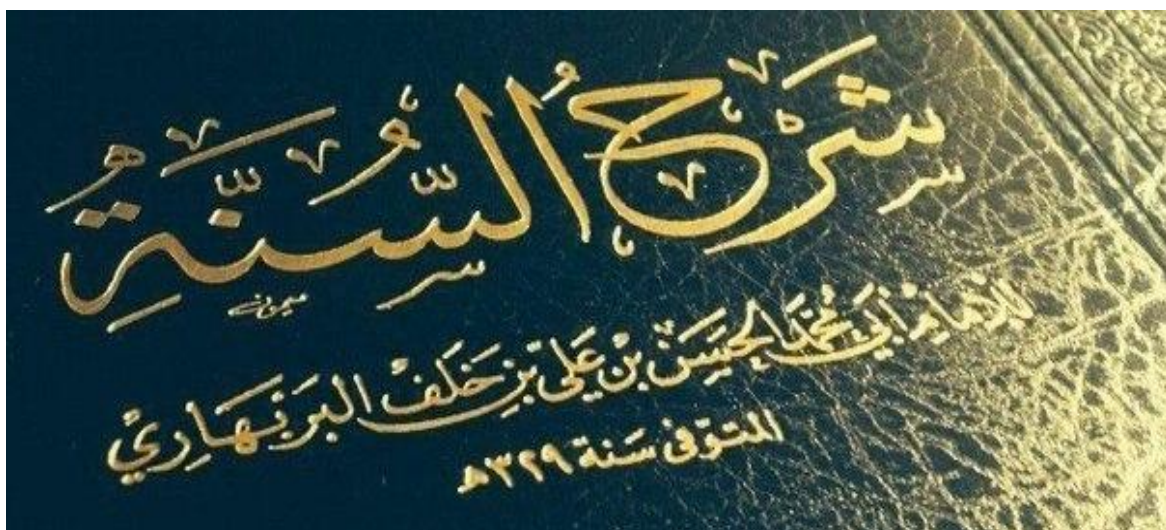 شَرْحُ السُّنَّةِ
للإمام أبي محمد الحسن بن علي بن خلف البربهاري
المتوفى سنة ٣٢٩هـ